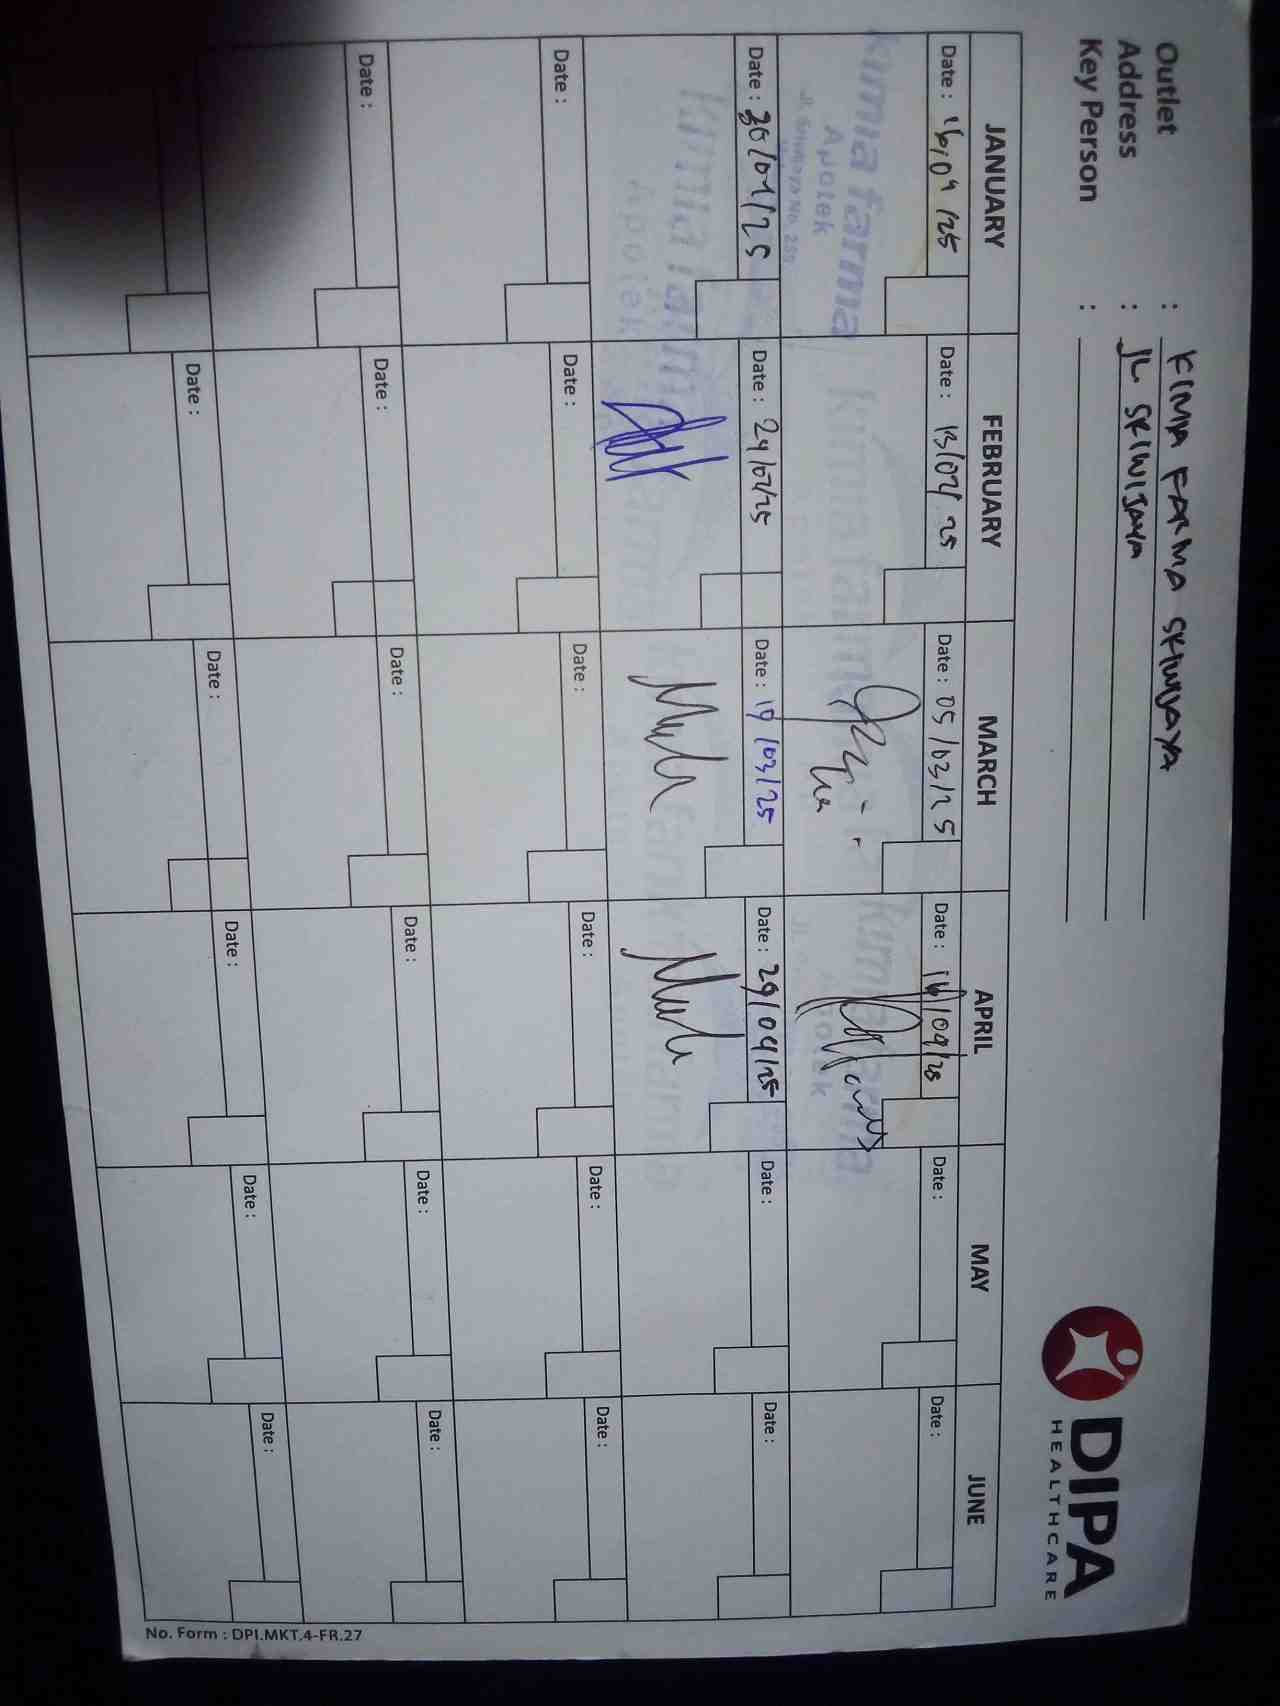 Outlet : KIMIA FARMA SRIWIJAYA
Address : JL. SRIWIJAYA
Key Person :
DIPA
HEALTHCARE
JANUARY FEBRUARY MARCH APRIL MAY JUNE
Date : 16/01/25 Date : 13/02/25 Date : 05/03/25 Date : 16/04/25 Date : Date :
kimia farma kimia farma kimia farma
Apotek Apotek
Jl. Sriwijaya No.
Date : 30/01/25 Date : 24/02/25 Date : 19/03/25 Date : 29/04/25 Date : Date :
kimia farma
Apotek
Date : Date : Date : Date : Date : Date :
Date : Date : Date : Date : Date : Date :
Date : Date : Date : Date : Date :
No. Form : DPI.MKT.4-FR.27